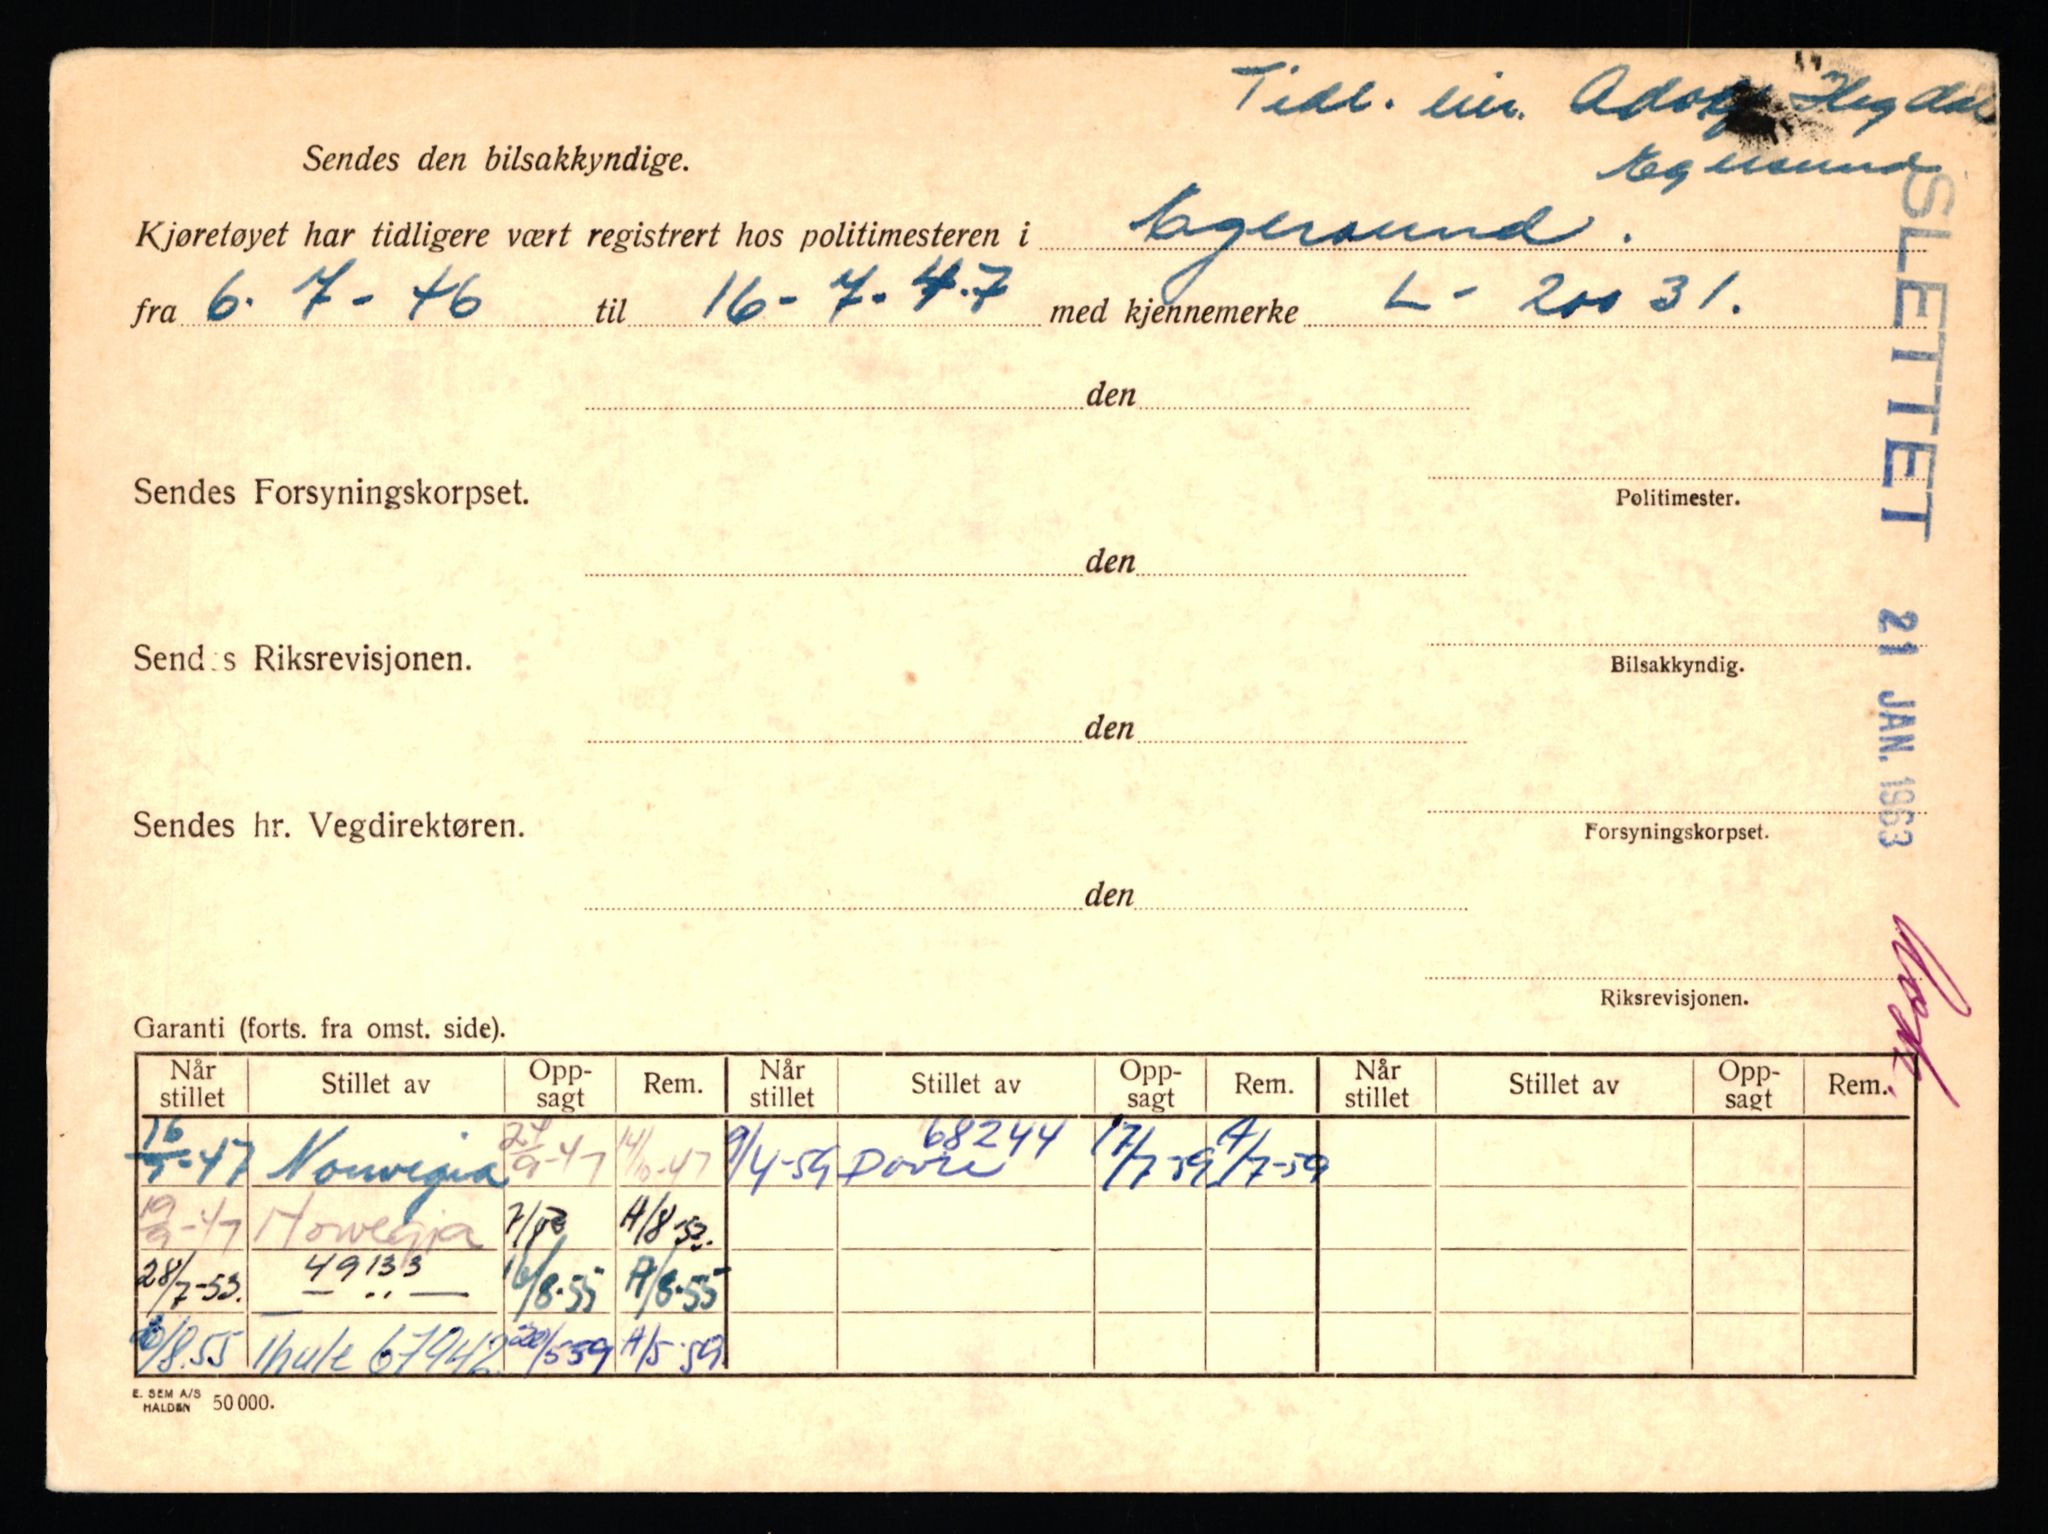 Tidl. eier. Adolf Hegdal
Egersund
Sendes den bilsakkyndige.
Kjøretøyet har tidligere vært registrert hos politimesteren i Egersund.
fra 6. 7 - 46 til 16 - 7. 47 med kjennemerke L - 20031.
den
Sendes Forsyningskorpset.
Politimester.
den
Sendes Riksrevisjonen.
Bilsakkyndig.
den
Sendes hr. Vegdirektøren.
Forsyningskorpset.
den
Riksrevisjonen.
SLETTET 21 JAN. 1963
Garanti (forts. fra omst. side).
Når stillet Stillet av Opp-sagt Rem. Når stillet Stillet av Opp-sagt Rem. Når stillet Stillet av Opp-sagt Rem.
16/7-47 Norwegia 24/9-47 14/10-47 9/4-59 Dovre 68244 17/7-59 A/7-59
19/9-47 Norwegia A/8-53.
28/7-53. 49133 — .. — 16/8-55 A/8-55
/8.55 Thule 67942 20/5 59 A/5-59
E. SEM A/S HALDEN 50 000.